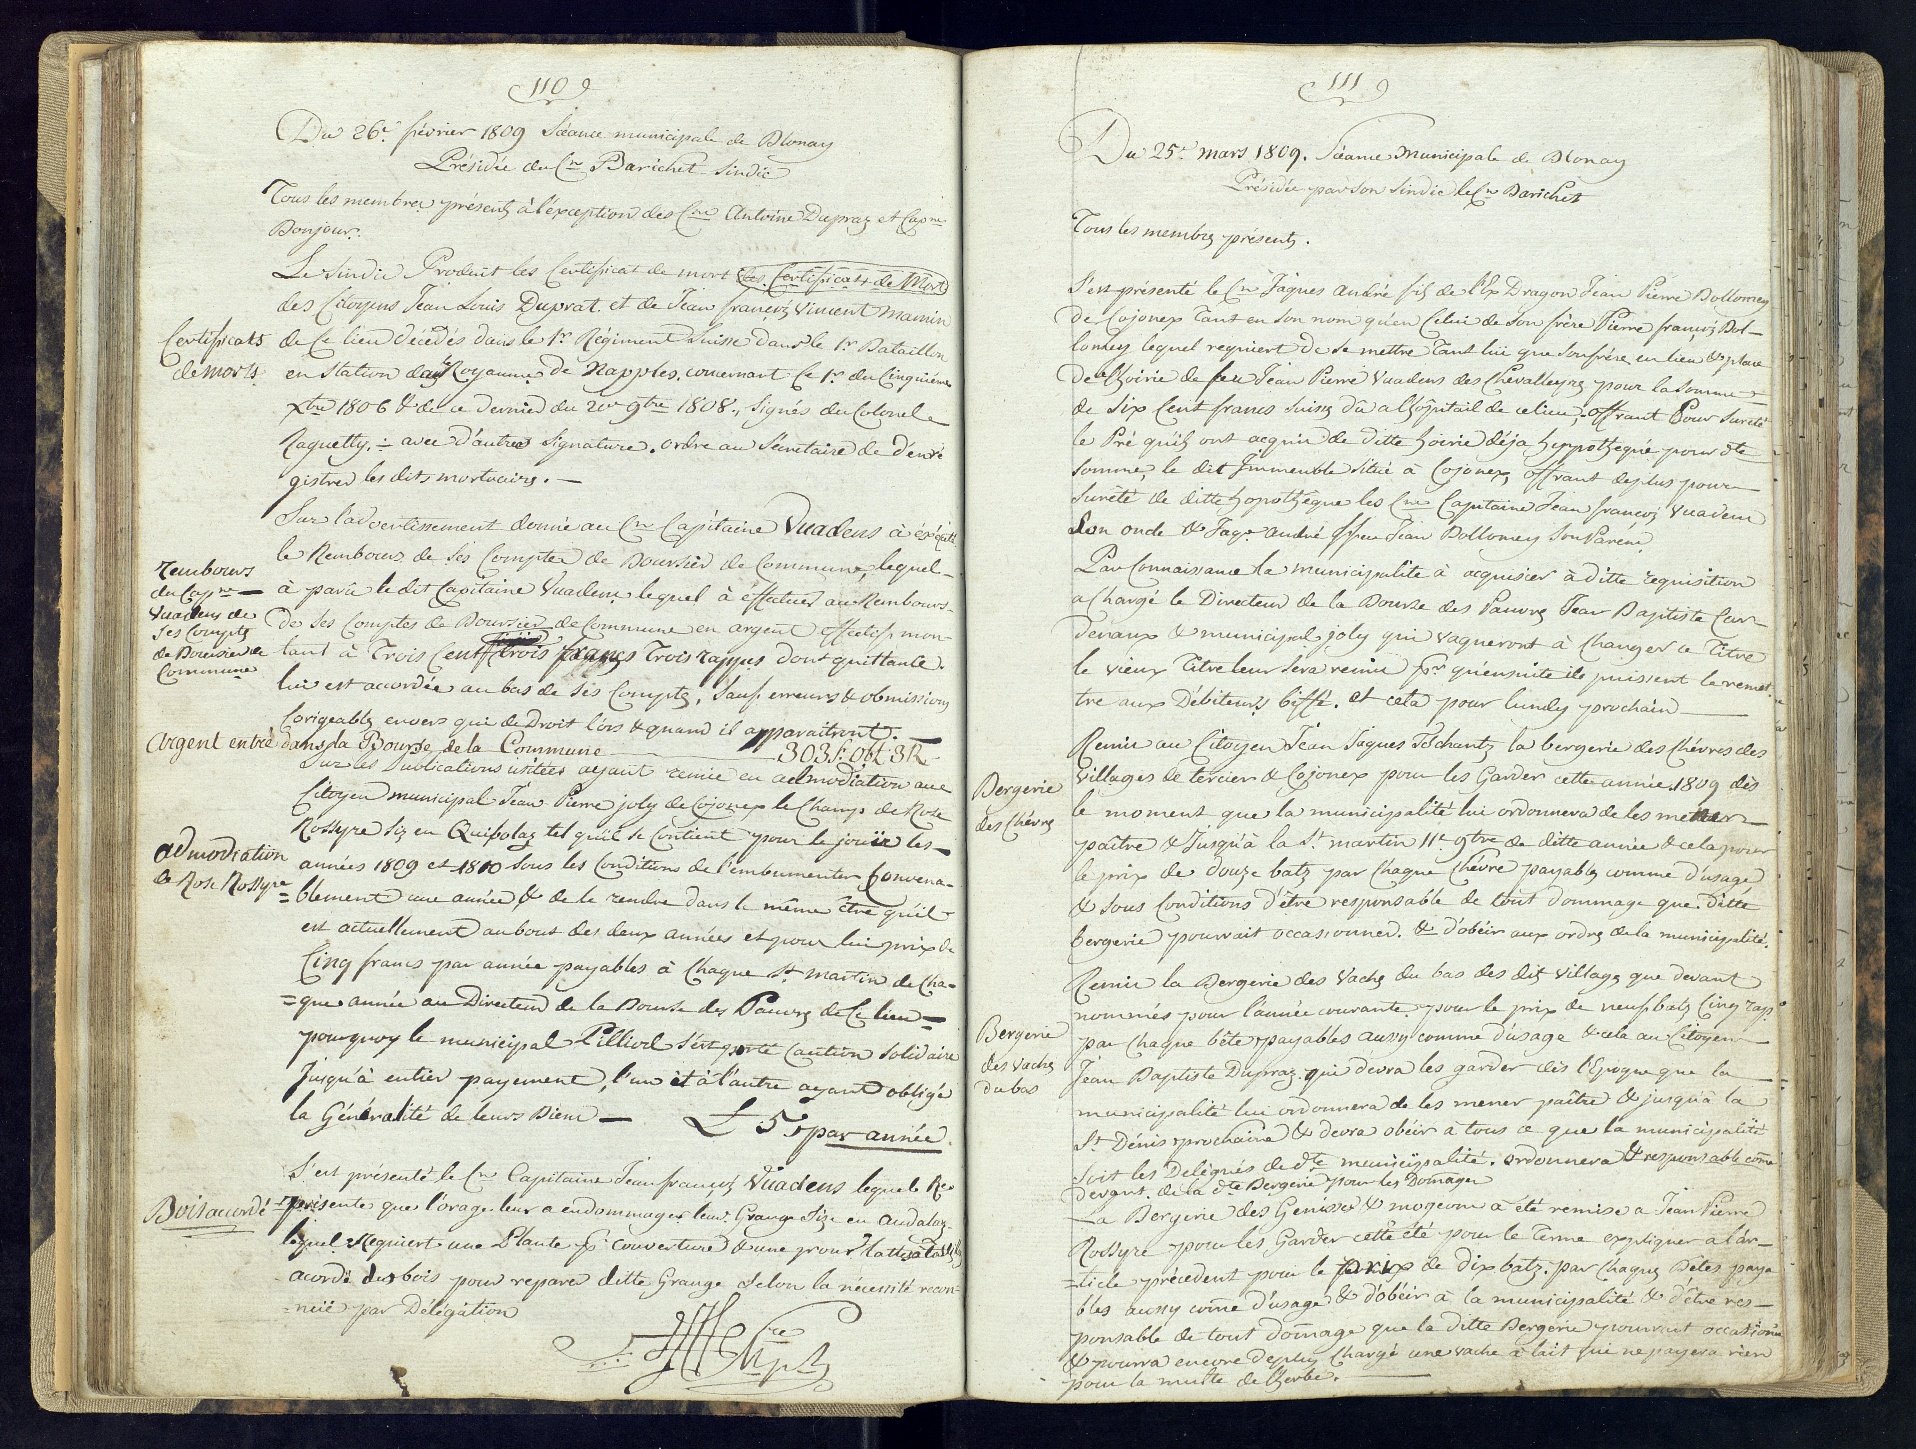 110
Du 26.e février 1809 Séance municipale de Blonay
Présidée du Cn Barichet Sindic
Tous les membres présents à l'éxception des Cns Antoine Dupraz et Capne
Bonjour.
Le Sindic Produit les Certificat de mort des Certificats de Mort
des Citoyens Jean Louis Duprat et de Jean françois Vincent Mamin
Certificats de morts.
de Ce lieu décédés dans le 1r Régiment Suisse dans le 1r Bataillon
en Station dans Royaume de Napples, concernant le 1r du Cinquième
Xbre 1806 & de ce dernier du 9bre 1808., Signés du Colonel
Raguetly. avec d'autres Signature. ordre au Sécretaire de d'enré
gistrer les dits mortuaires. —
Sur l'advertissement donné au Cn Capitaine Vuadens à éxécuté
Rembours du Capne Vuadens de Ses Compts de Boursier de Commune
le Rembours de Ses Comptes de Boursier de Commune, lequel
à parû le dit Capitaine Vuadens lequel à effectué au Rembours
de Ses Comptes de Boursier de Commune en argent effectif mon-
tant à Trois Cent trois francs Trois rappes dont quittance
lui est accordée au bas de Ses Comptes, Sauf erreurs & obmissions
Corigeables envers qui de Droit lors & quand il apparaitront.
Argent entré dans la Bourse de la Commune — 303f: 0bt 3R
Sur les Publications usitées ayant remis en admodiation au
Citoyen municipal Jean Pierre joly de Cojonex le Champ de Rose
Rossyre Siz en Quibolaz tel qu'il se Contient pour le jouïr les
admodiation de Rose Rossyre
années 1809 et 1810 Sous les Conditions de l'embumenter Convena-
=blement une année & de le rendre dans le même être qu'il
est actuellement au bout des deux années et pour lui prix de
Cinq francs par année payables à Chaque St martin de Cha-
=que année au Directeur de la Bourse des Pauvres de Ce lieu
pourquoy le municipal Pilliod s'est porté Caution Solidaire
Jusqu'à entier payement, l'un et à l'autre ayant obligé
la Généralité de leurs Biens — L 5 par année.
S'est présenté le Cn Capitaine Jean françois Vuadens lequel Re-
Bois accordé
=présente que l'orage leur a endommager leur Grange Size en Andalaz
lequel Requiert une Plante pr couverture & une pour lattes
acordé du bois pour reparer ditte Grange Selon la nécessité recon-
=nuë par Délégation
111
Du 25.e mars 1809. Séance Municipale de Blonay
Présidée par Son Sindic le Cn Barichet
Tous les membres présents.
S'est présenté le Cn Jâques André fils de l'Ex Dragon Jean Pierre Dollomey
de Cojonex Tant en Son nom qu'en Celui de Son frère Pierre françois Dol-
lomey lequel requiert de Se mettre Tant lui que Son frère en lieu & place
de l'hoirie de feu Jean Pierre Vuadens des Chevalleyres pour la Somme
de Six Cent francs Suisses dû a l'hôpitail de ce lieu, offrant Pour Sureté
le Pré quils ont acquis de ditte hoirie déja hyppothequé pour dte
Somme, le dit Immeuble Situé à Cojonex, offrant deplus pour
Surêté de ditte hypothêque les Cns Capitaine Jean françois Vuadens
Son oncle & Jaqs André ffeu Jean Dollomey Son Parent,
Par Connaissance la municipalite à acquiscer à ditte requisition
a Chargé le Directeur de la Bourse des Pauvres Jean Baptiste Cur-
denaux & municipal joly qui vaqueront à Changer ce Titre
le vieux Titre leur Sera remis pr qu'ensuite ils puissent le remet-
tre aux Débiteurs biffé. et cela pour lundy prochain —
Remis au Citoyen Jean Jaques Tschantz la bergerie des Chévres des
Bergerie des Chévres
Villages de tercier & Cojonex pour les Garder cette année 1809 dès
le moment que la municipalité lui ordonnera de les mener
paître & Jusqu'à la St martin 11e 9bre de ditte année & cela pour
le prix de douze batz par Chaque Chévre payables comme d'usage
& sous Conditions d'être responsable de tout dommage que ditte
bergerie pourrait occasionner. & d'obéir aux ordres de la municipalité.
Remis la Bergerie des Vaches du bas des dit Villages que devant
Bergerie des vaches du bas
nommés pour l'année courante pour le prix de neuf batz Cinq rap
par Chaque bête payables aussy comme d'usage & cela au Citoyen
Jean Baptiste Dupraz qui devra les garder dès l'Epoque que la
municipalité lui ordonnera de les mener paître & jusqu'à la
St Dénis prochaine & devra obéir à tous ce que la municipalité
Soit les Delégués de dte municipalité. ordonnera & responsable come
devant de la dte Bergerie pour les Domages
La Bergerie des Genisses & mogeons à été remise a Jean Pierre
Rossyre pour les Garder cette été pour le Terme expliquer a l'ar-
=ticle précedent pour le prix de dix batz par Chaques Bêtes paya
bles aussy come d'usage & d'obéir à la municipalité & d'être res-
ponsable de tout domage que la ditte Bergerie pourrait occasionner
& pourra encore deplus Chargé une vache à lait qui ne payera rien
pour la muste de l'herbe.